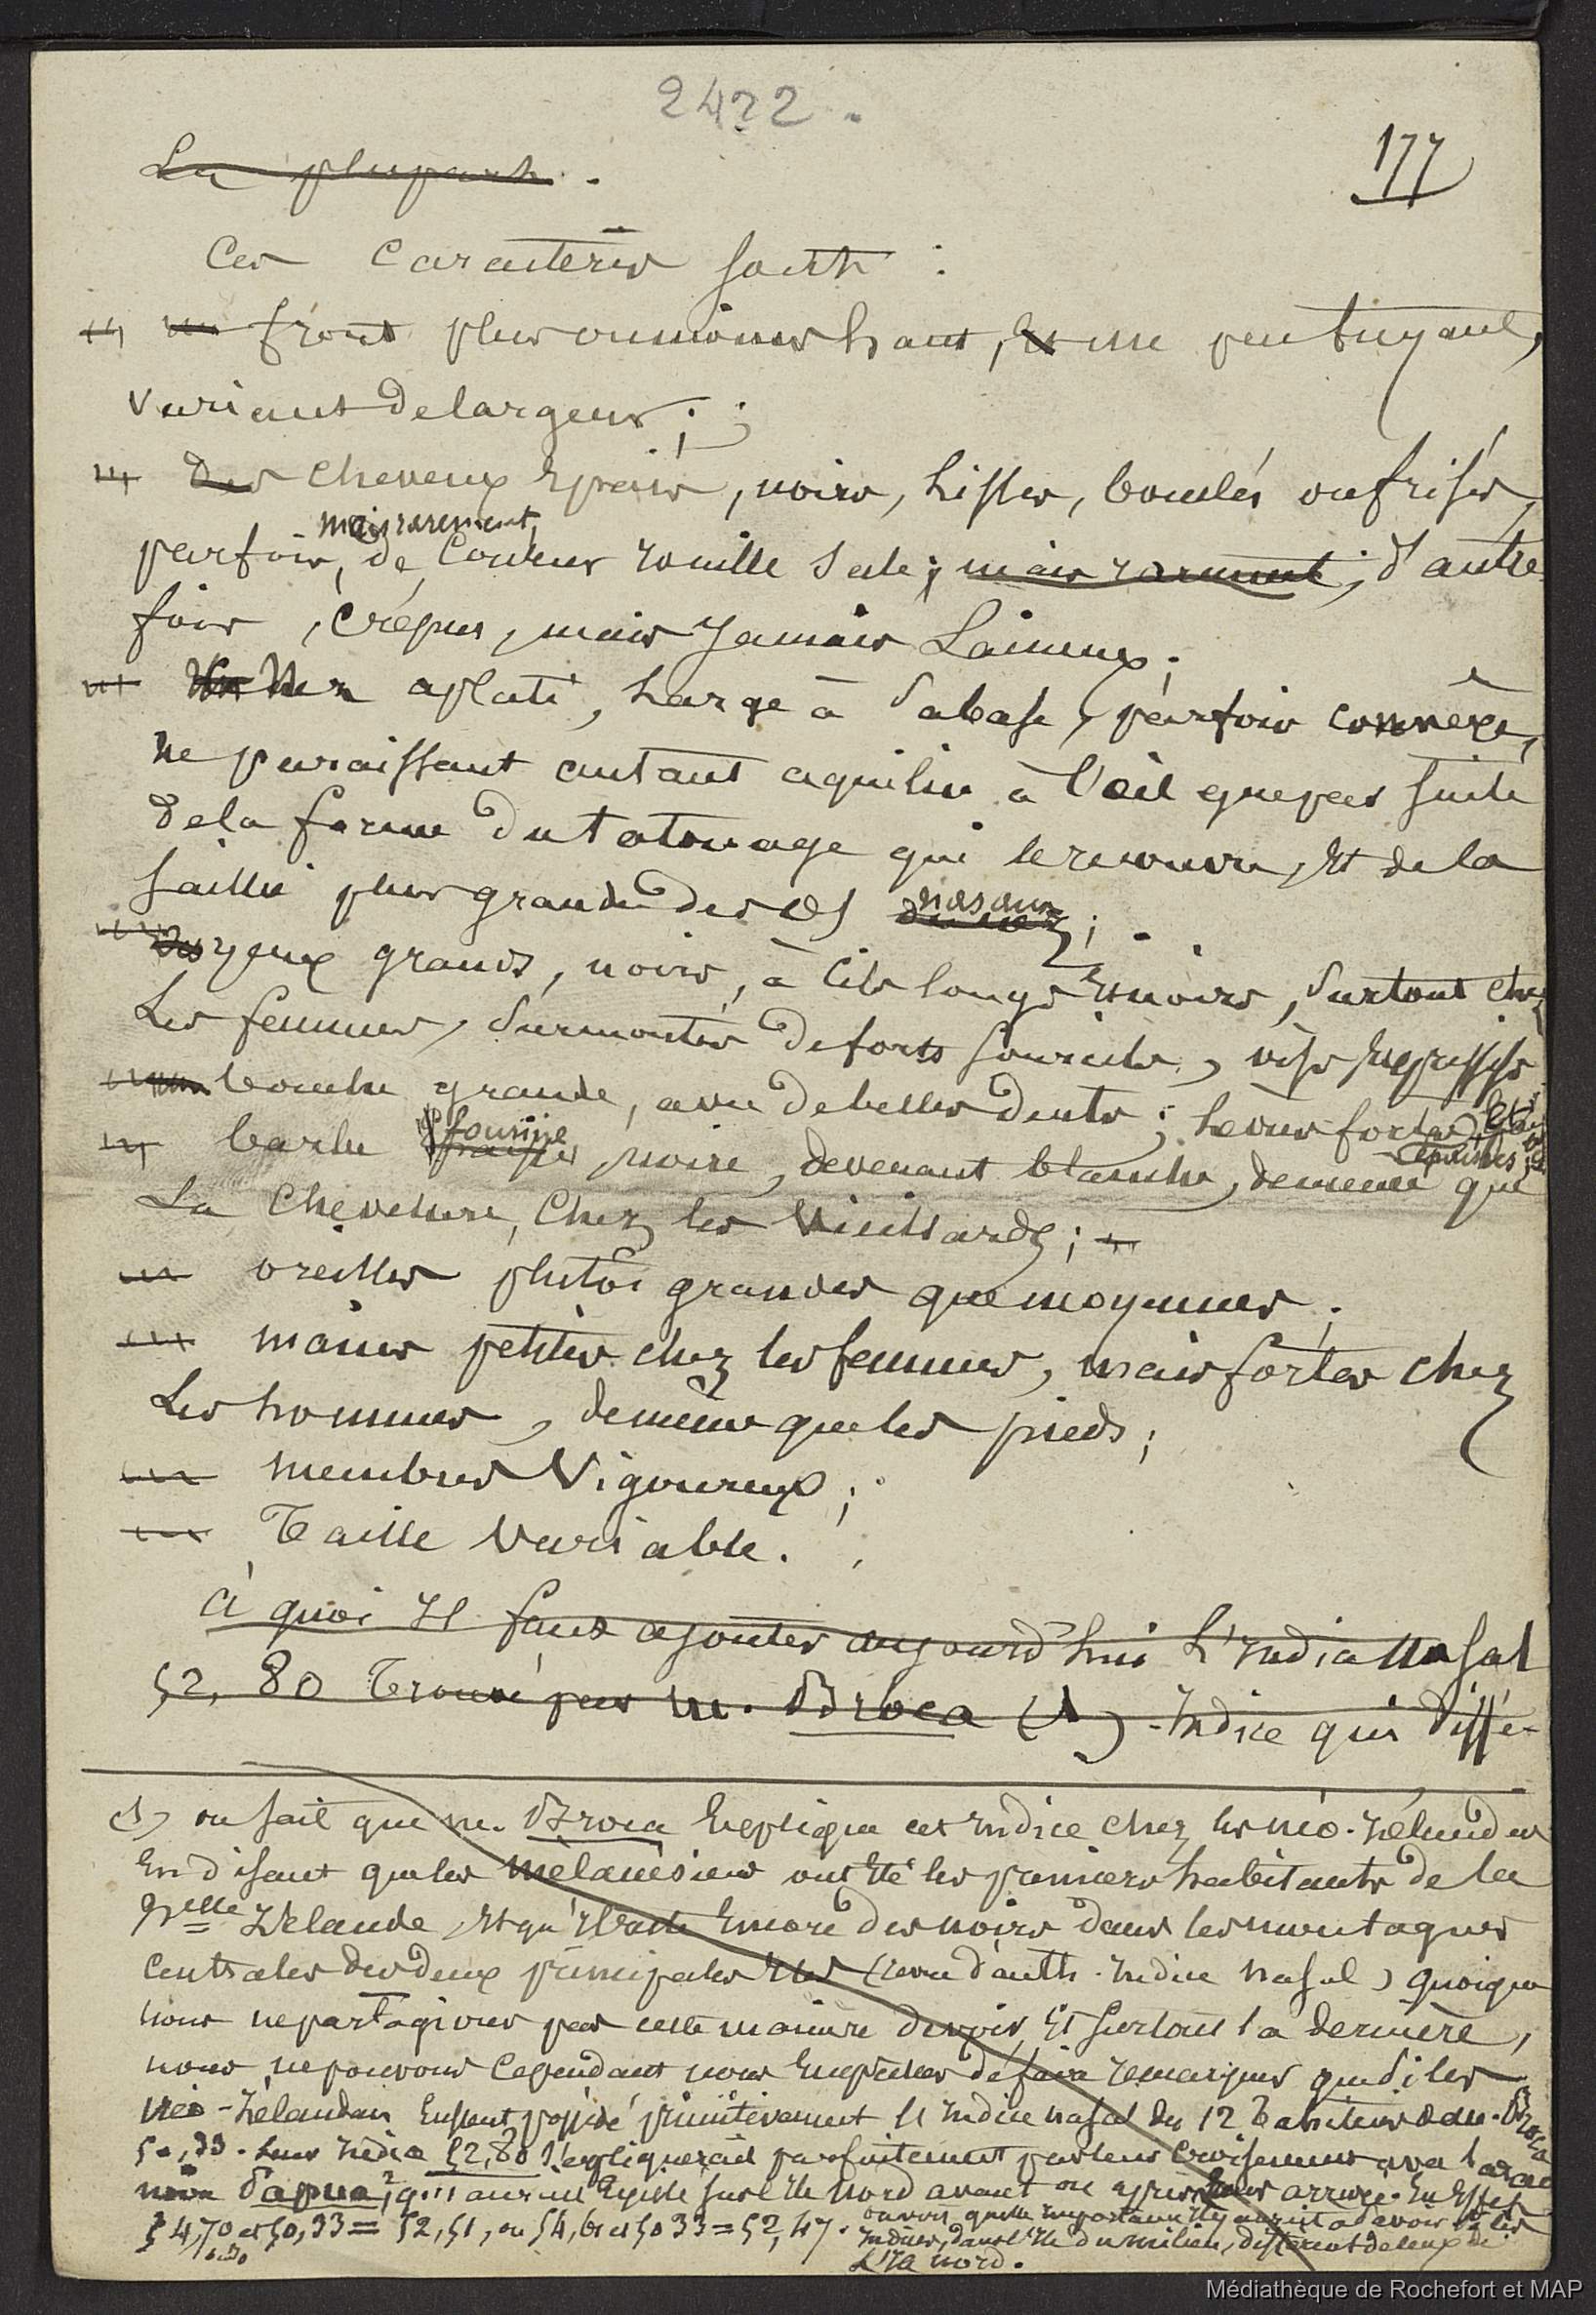 2422.
177
La plupart.
Ces caractères sont :
front plus ou moins haut, et un peu fuyant,
variant de largeur ;
des cheveux épais, noirs, lisses, bouclés ou frisés,
mais rarement,
parfois, de couleur rouille sale ; mais rarement, d'autre
fois, crépus, mais jamais laineux ;
Nez aplati, large à sa base, parfois convexe,
ne paraissant autant aquilin à l'œil que par suite
de la forme du tatouage qui le recouvre, et de la
saillie plus grande des os nasaux ;
des yeux grands, noirs, à cils longs et noirs, surtout chez
les femmes, surmontés de forts sourcils,
bouche grande, avec de belles dents ; lèvres fortes et
épaisses ;
barbe fournie noire, devenant blanche, de même que
la chevelure, chez les vieillards ;
oreilles plutôt grandes que moyennes ;
mains petites chez les femmes, mais fortes chez
les hommes, de même que les pieds ;
membres vigoureux ;
Taille variable.
à quoi il faut ajouter aujourd'hui l'indice nasal
52,80 trouvé par M. Broca (1) - Indice qui diffé-
(1) on sait que M. Broca explique cet indice chez les néo-zélandais
en disant que les mélanésiens ont été les premiers habitants de la
Nelle Zélande, et qu'il reste encore des noirs dans les montagnes
centrales des deux principales îles (revue d'anth. indice nasal) quoique
nous ne partagions pas cette manière de voir, et surtout la dernière,
nous ne pouvons cependant nous empêcher de faire remarquer que si les
néo-zélandais eussent possédé primitivement l'indice nasal des 12 Tahitiens de M. Broca
50,33. leur indice 52,80 s'expliquerait parfaitement par leur croisement avec la race
Papua, qui aurait existé sur l'île nord avant ou après leur arrivée. En effet
54,70 et 50,33 = 52,51, ou 54,61 et 50 33 = 52,47. on voit quelle importance il y aurait à avoir les
indices, dans l'île du milieu, différent de ceux de
l'île nord.
Médiathèque de Rochefort et MAP